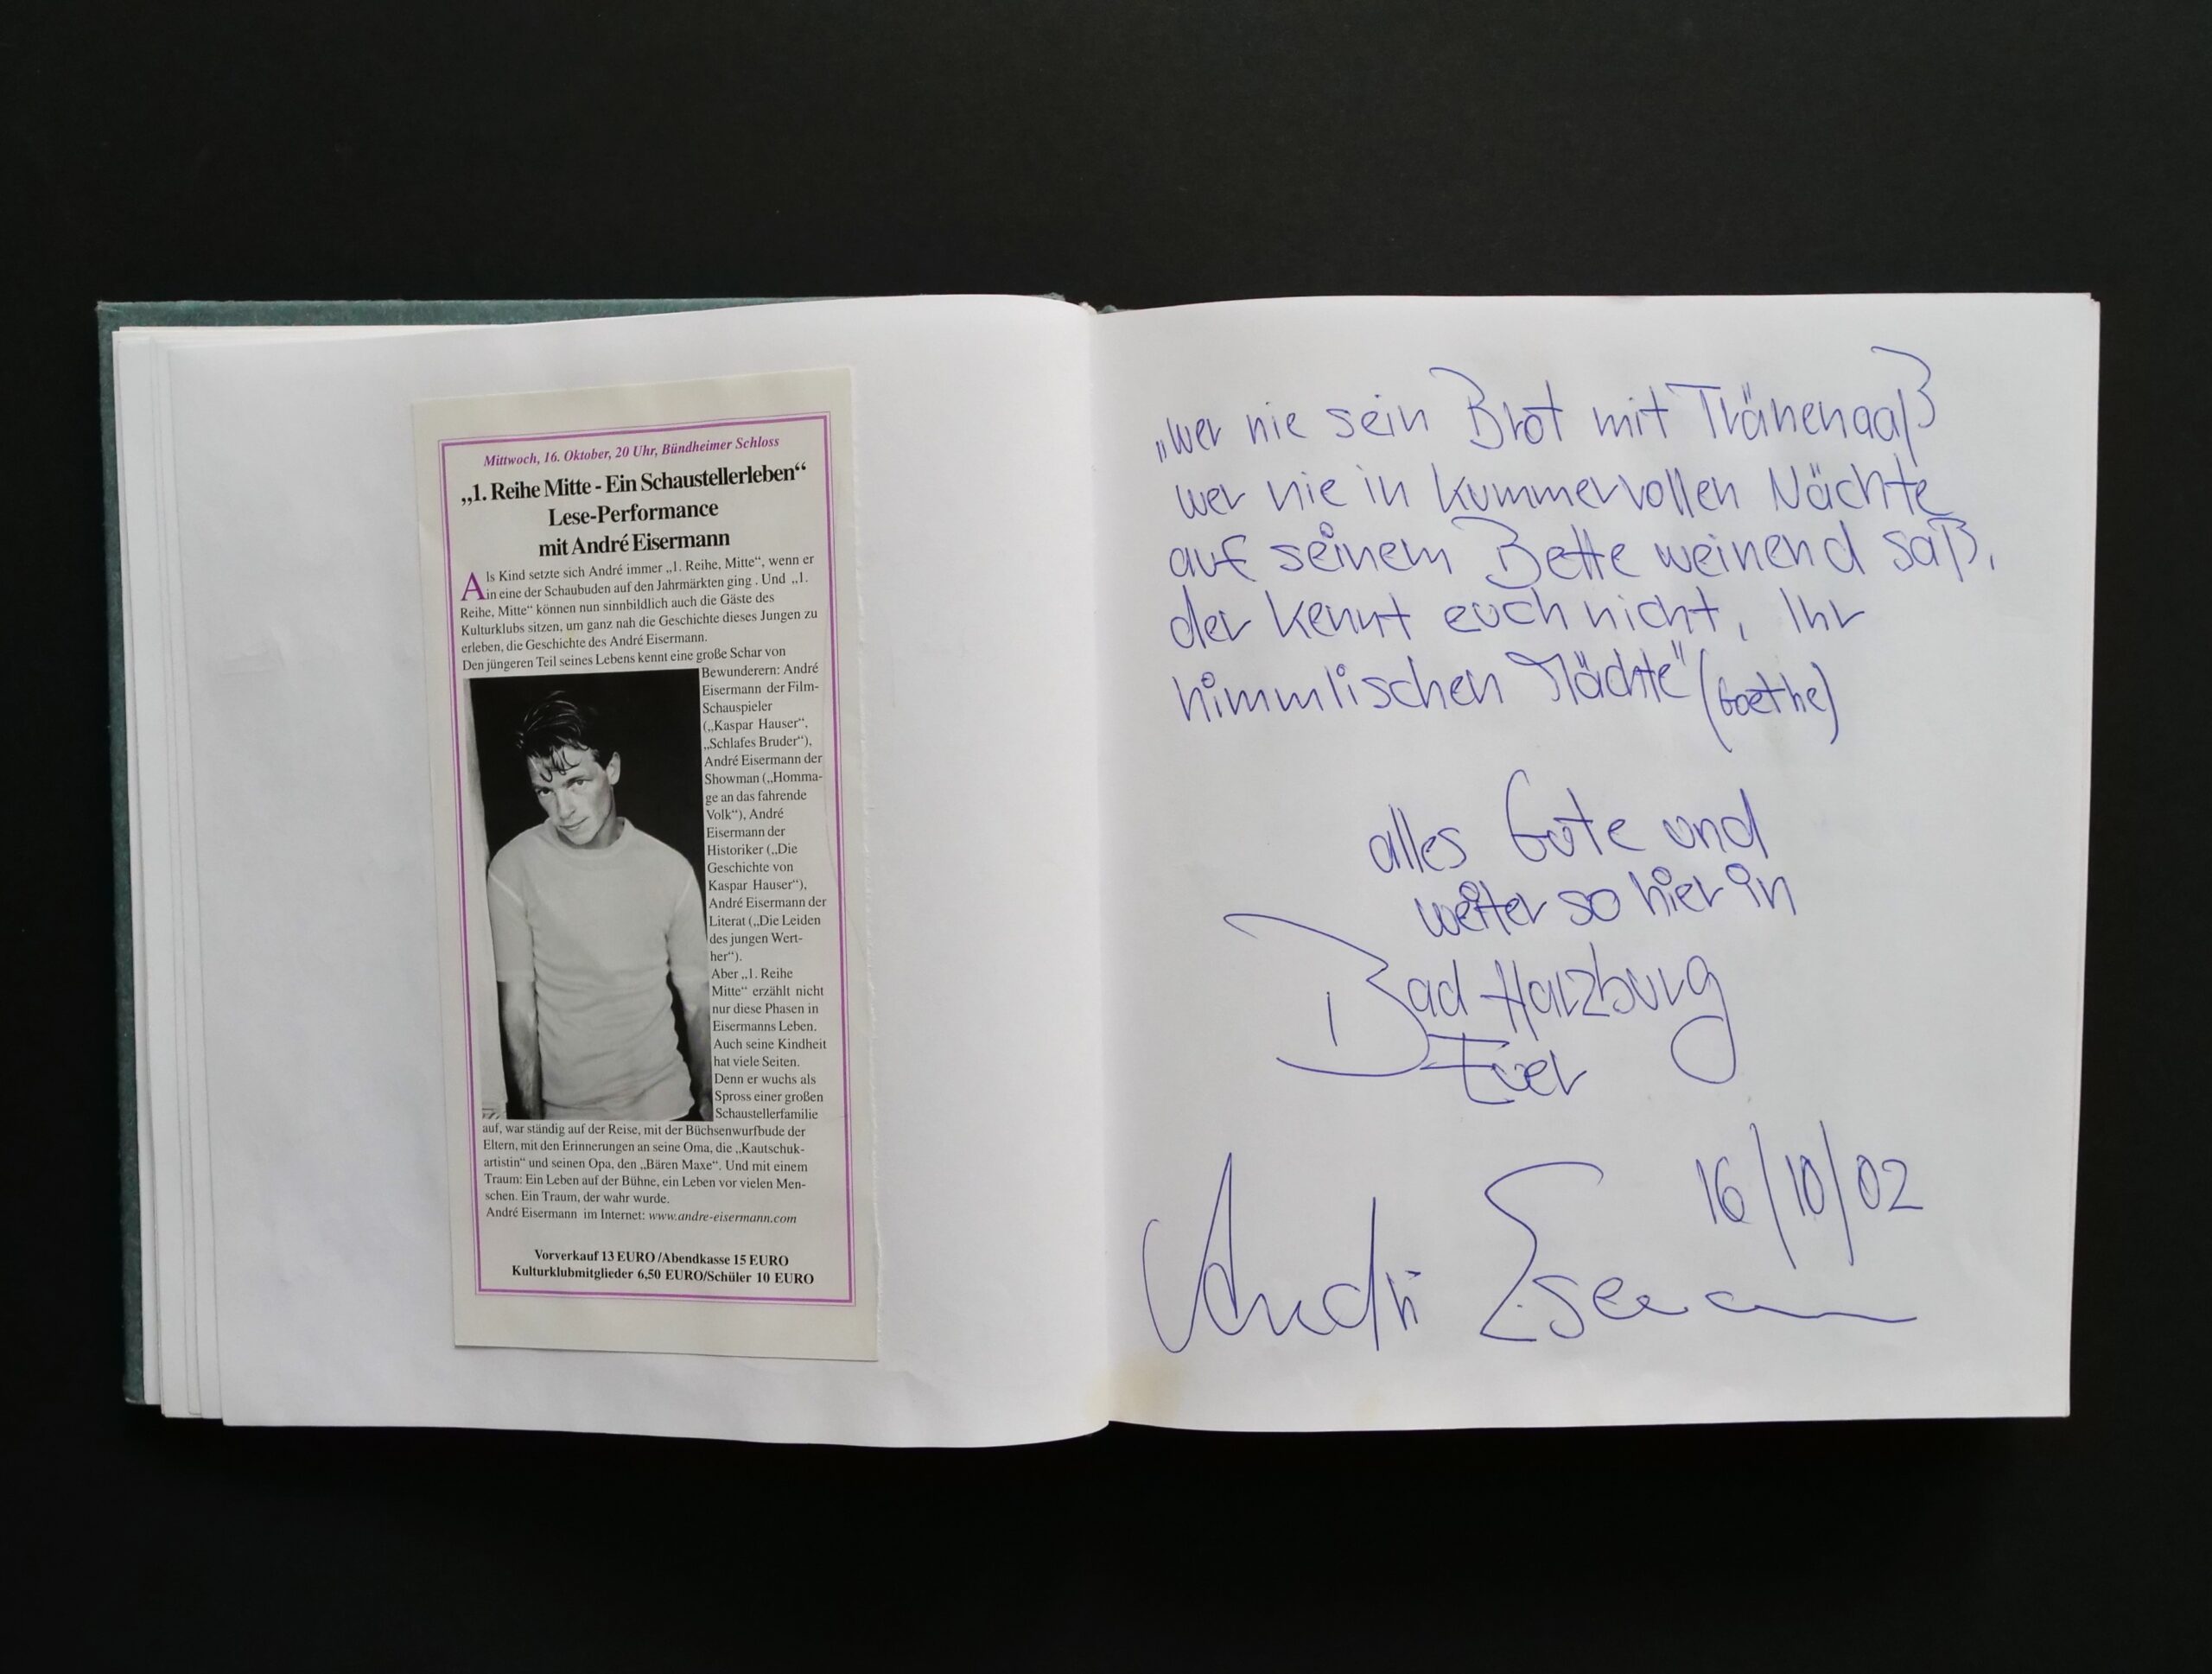 Mittwoch, 16. Oktober, 20 Uhr, Bündheimer Schloss
„1. Reihe Mitte - Ein Schaustellerleben“
Lese-Performance
mit André Eisermann
Als Kind setzte sich André immer „1. Reihe, Mitte“, wenn er
in eine der Schaubuden auf den Jahrmärkten ging . Und „1.
Reihe, Mitte“ können nun sinnbildlich auch die Gäste des
Kulturklubs sitzen, um ganz nah die Geschichte dieses Jungen zu
erleben, die Geschichte des André Eisermann.
Den jüngeren Teil seines Lebens kennt eine große Schar von
Bewunderern: André
Eisermann der Film-
Schauspieler
(„Kaspar Hauser“,
„Schlafes Bruder“),
André Eisermann der
Showman („Homma-
ge an das fahrende
Volk“), André
Eisermann der
Historiker („Die
Geschichte von
Kaspar Hauser“),
André Eisermann der
Literat („Die Leiden
des jungen Wert-
her“).
Aber „1. Reihe
Mitte“ erzählt nicht
nur diese Phasen in
Eisermanns Leben.
Auch seine Kindheit
hat viele Seiten.
Denn er wuchs als
Spross einer großen
Schaustellerfamilie
auf, war ständig auf der Reise, mit der Büchsenwurfbude der
Eltern, mit den Erinnerungen an seine Oma, die „Kautschuk-
artistin“ und seinen Opa, den „Bären Maxe“. Und mit einem
Traum: Ein Leben auf der Bühne, ein Leben vor vielen Men-
schen. Ein Traum, der wahr wurde.
André Eisermann im Internet: www.andre-eisermann.com
Vorverkauf 13 EURO /Abendkasse 15 EURO
Kulturklubmitglieder 6,50 EURO/Schüler 10 EURO
„wer nie sein Brot mit Tränen aß
wer nie in kummervollen Nächte
auf seinem Bette weinend saß,
der kennt euch nicht, Ihr
himmlischen Mächte" (Goethe)
alles Gute und
weiter so hier in
Bad Harzburg
Euer
16/10/02
André Eisermann